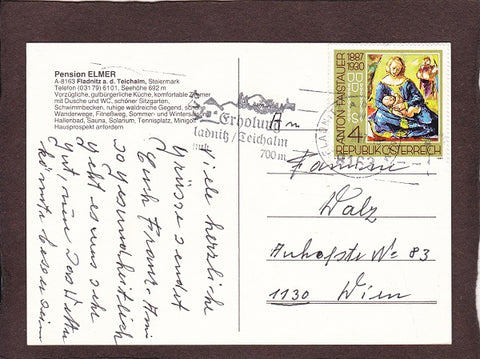 Pension ELMER
A-8163 Fladnitz a. d. Teichalm, Steiermark
Telefon (03179) 6101, Seehöhe 692 m
Vorzügliche, gutbürgerliche Küche, komfortable Zimmer
mit Dusche und WC, schöner Sitzgarten,
Schwimmbecken, ruhige waldreiche Gegend, schöne
Wanderwege, Fitneßweg, Sommer- und Wintersport
Hallenbad, Sauna, Solarium, Tennisplatz, Minigolf
Hausprospekt anfordern
Erholung
Fladnitz/Teichalm
700 m
1887
1930
ANTON FAISTAUER
S
4
REPUBLIK ÖSTERREICH
8163
Viele herzliche
Grüsse sendet
Euch Frau
so gesundheitlich
geht es uns sehr
gut, nur das Wetter
könnte besser sein
An
Familie
Walz
Anhofstr No 83
1130 Wien